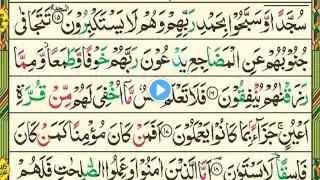 سُجَّدًا وَّ سَبَّحُوْا بِحَمْدِ رَبِّهِمْ وَ هُمْ لَا يَسْتَكْبِرُوْنَ ۩ ﴿۱۵﴾ تَتَجَافٰى
جُنُوْبُهُمْ عَنِ الْمَضَاجِعِ يَدْعُوْنَ رَبَّهُمْ خَوْفًا وَّ طَمَعًا وَّ مِمَّا
رَزَقْنٰهُمْ يُنْفِقُوْنَ ﴿۱۶﴾ فَلَا تَعْلَمُ نَفْسٌ مَّاۤ اُخْفِيَ لَهُمْ مِّنْ قُرَّةِ
اَعْيُنٍ جَزَآءًۢ بِمَا كَانُوْا يَعْمَلُوْنَ ﴿۱۷﴾ اَفَمَنْ كَانَ مُؤْمِنًا كَمَنْ كَانَ
فَاسِقًا لَا يَسْتَوٗنَ ﴿۱۸﴾ اَمَّا الَّذِيْنَ اٰمَنُوْا وَ عَمِلُوا الصّٰلِحٰتِ فَلَهُمْ